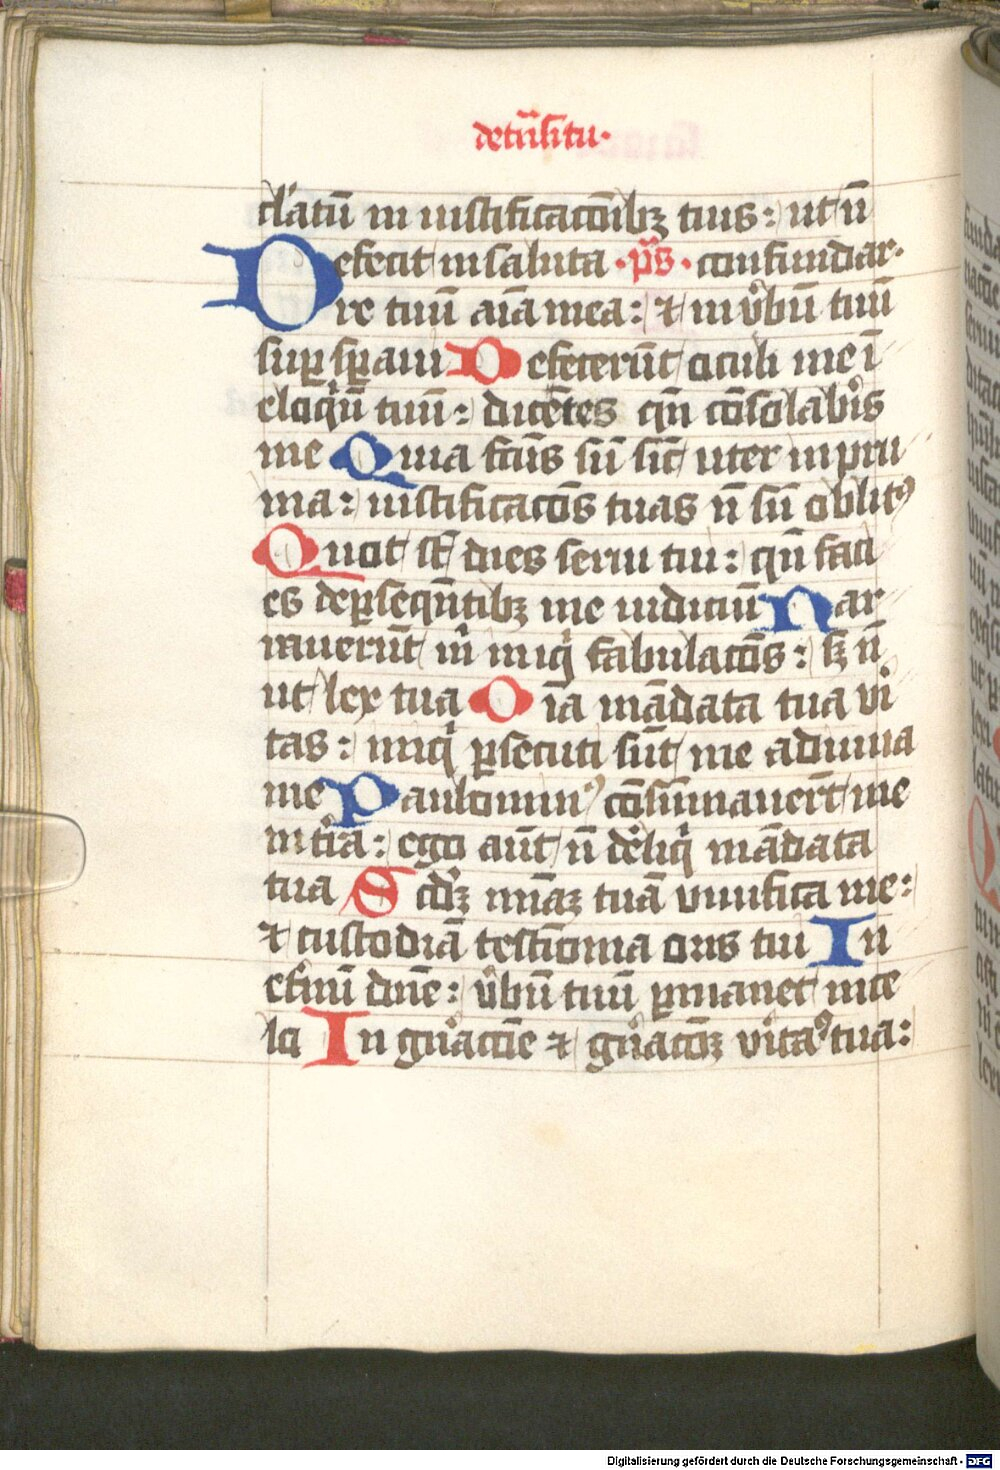 de tn̄situ·
cl'atū in iustificac̄onibꝫ tuis: ut n̄
Defecit in saluta ·p̄s· confundar·
re tuū aīa mea: ⁊ in v̓bū tuū
suꝑ sꝑaui Defecerūt oculi me ī
eloq̄ū tuū: dicētes qn̄ cōsolab'is
me Quia fc̄us sū sic̄ uter in prui
na: iustificac̄ōs tuas n̄ sū oblitꝰ
Quot st̄ dies serui tui: qn̄ faci
es de ꝑseqn̄tibꝫ me iudiciū Nar
rauerūt m̄ iniq̇ fabulac̄ōs: sꝫ n̄
ut lex tua Oīa mādata tua v̓i
tas: iniq̇ ꝑsecuti sūt me adiuua
me Paulominꝰ cōsūmauert̄ me
in t̓ra: ego aūt n̄ d̓eliq̇ mādata
tua Scd̄ꝫ mīaꝫ tuā viuifica me:
⁊ custodiā testīonia oris tui In
et̓nū dn̄e: v̓bū tuū ꝑmanet in ce
lo In gn̓ac̄oē ⁊ gn̓ac̄oꝫ v̓itaˢ tua:
Digitalisierung gefördert durch die Deutsche Forschungsgemeinschaft - DFG